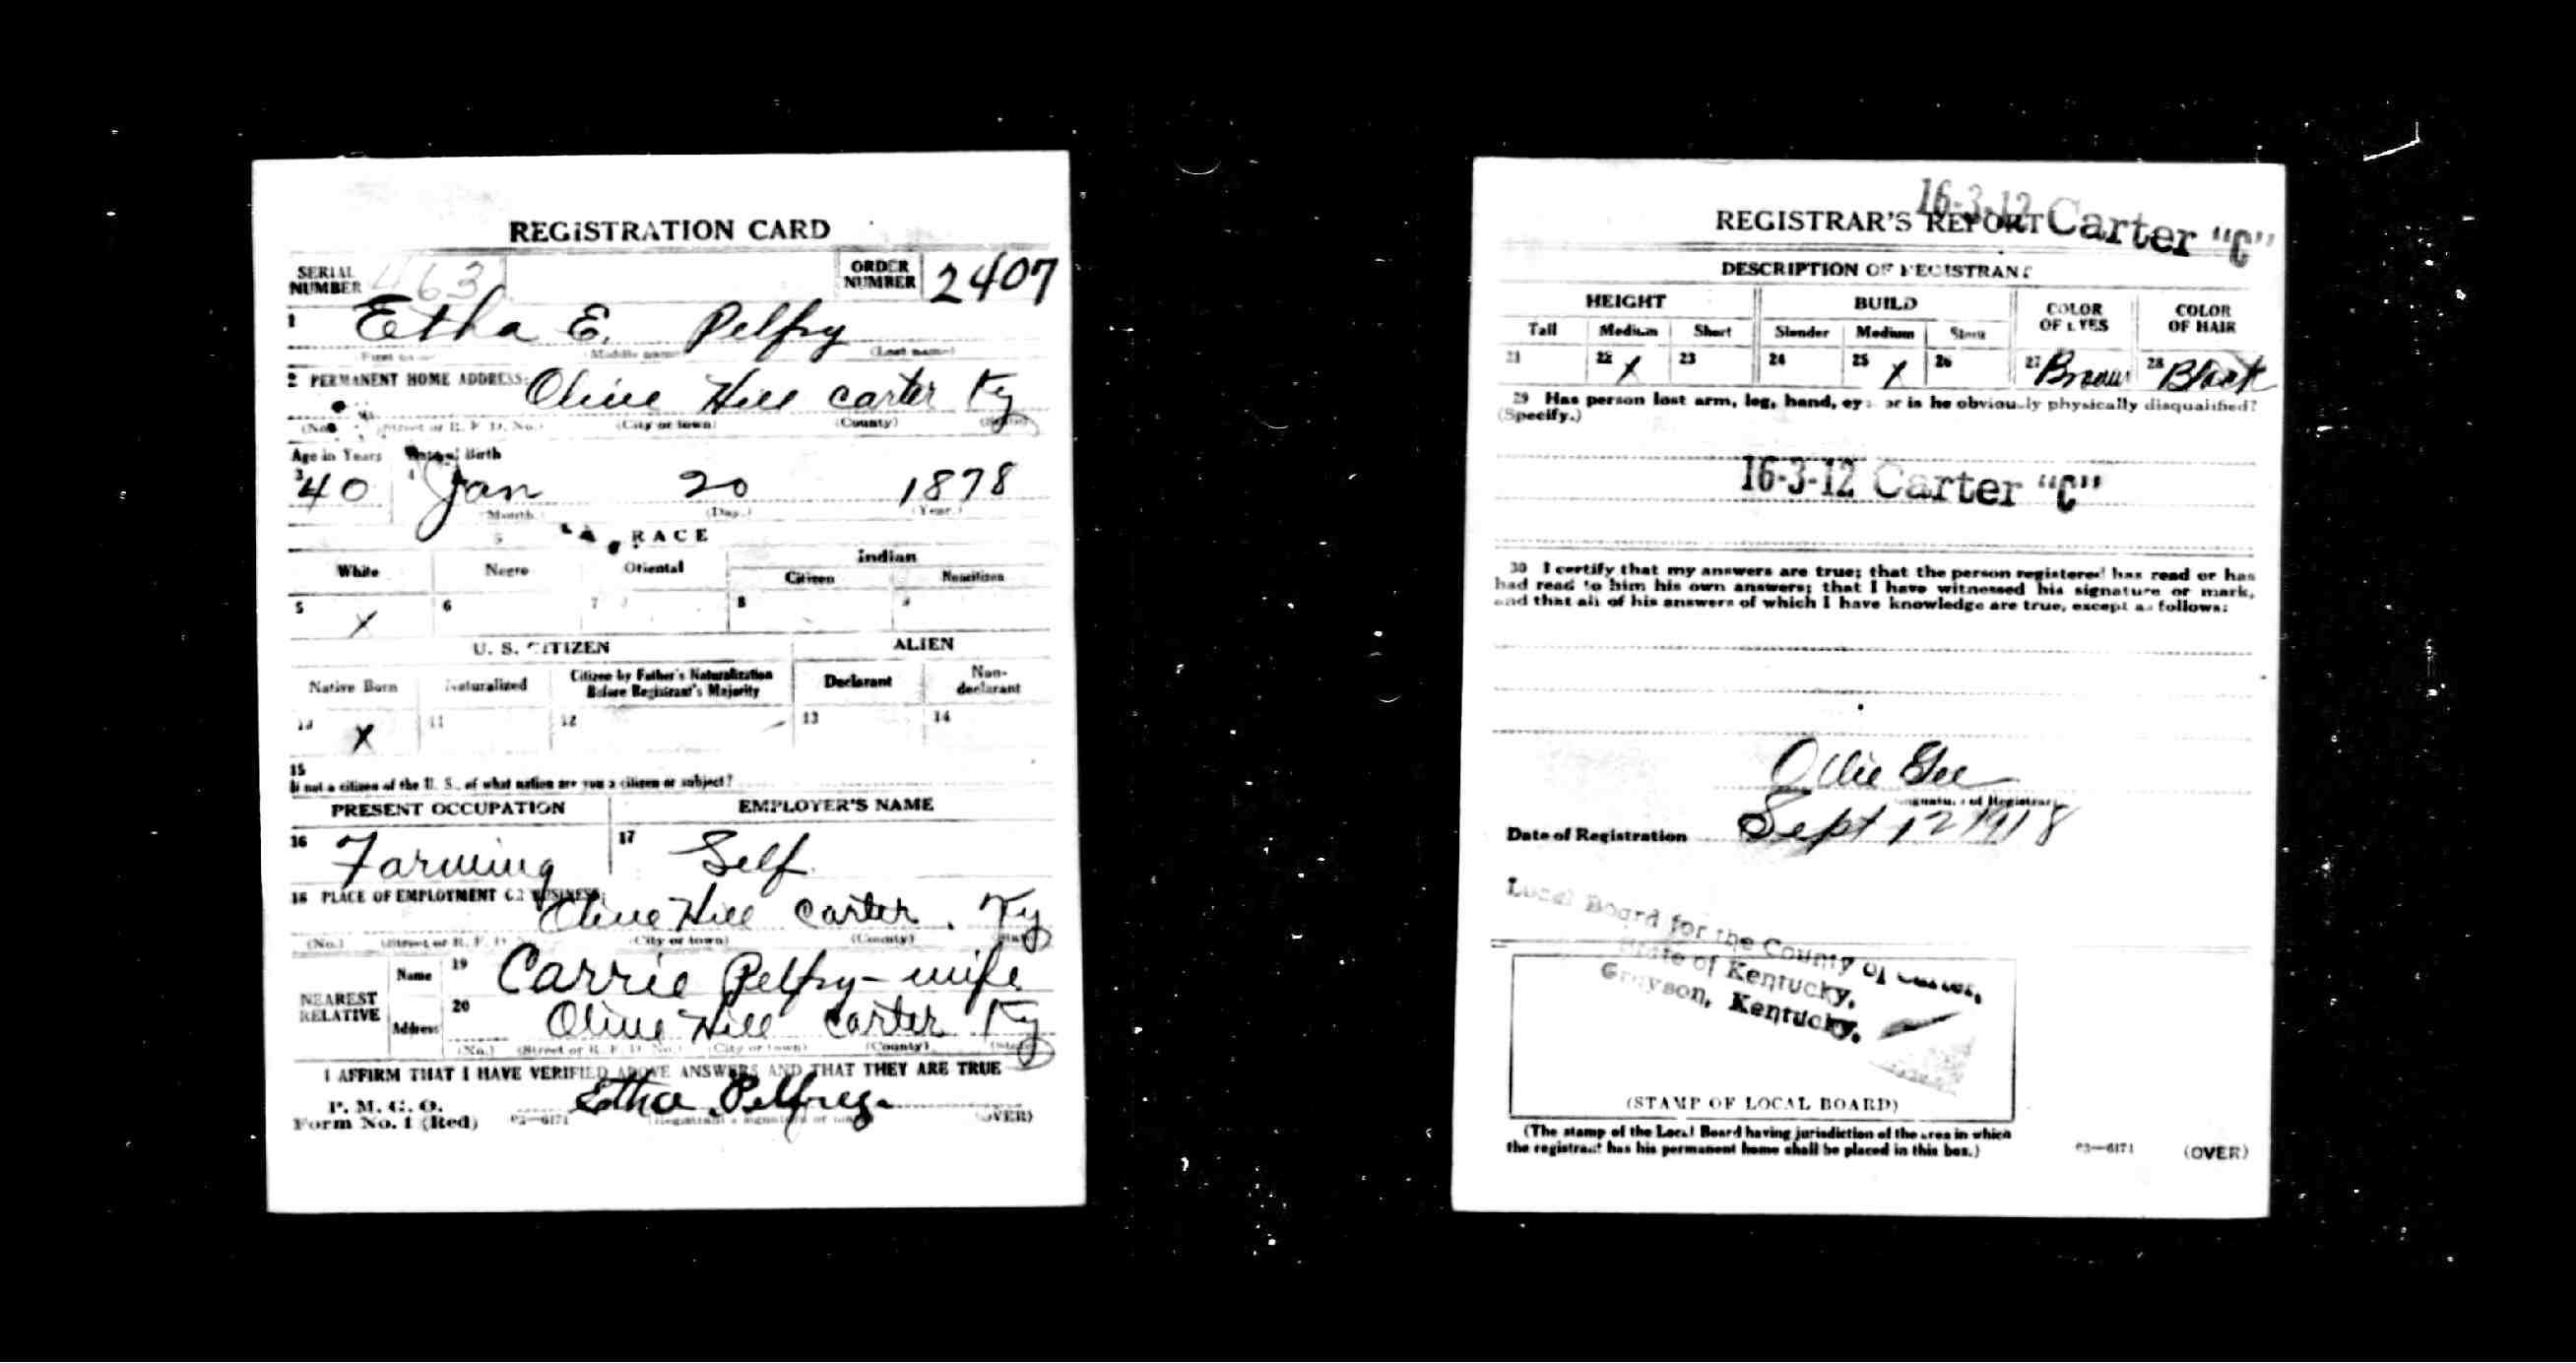 REGISTRATION CARD
SERIAL NUMBER 463 ORDER NUMBER 2407
1 Etha E. Pelfry
(First name) (Middle name) (Last name)
2 PERMANENT HOME ADDRESS:
Olive Hill Carter Ky
(No.) (Street or R. F. D. No.) (City or town) (County) (State)
Age in Years Date of Birth
3 40 4 Jan 20 1878
(Month.) (Day.) (Year.)
RACE
White Negro Oriental Indian
Citizen Noncitizen
5 X 6 7 8 9
U. S. CITIZEN ALIEN
Native Born Naturalized Citizen by Father's Naturalization Before Registrant's Majority Declarant Non-declarant
10 X 11 12 13 14
15
If not a citizen of the U. S., of what nation are you a citizen or subject?
PRESENT OCCUPATION EMPLOYER'S NAME
16 Farming 17 Self
18 PLACE OF EMPLOYMENT OR BUSINESS:
Olive Hill Carter. Ky
(No.) (Street or R. F. D. (City or town) (County) (State)
NEAREST RELATIVE Name 19 Carrie Pelfry - wife
Address 20 Olive Hill Carter Ky
(No.) (Street or R. F. D. No.) (City or town) (County) (State)
I AFFIRM THAT I HAVE VERIFIED ABOVE ANSWERS AND THAT THEY ARE TRUE
P. M. G. O.
Form No. 1 (Red) 03—6171 Etha Pelfrey (OVER)
(Registrant's signature or mark)
16-3-12 Carter "C"
REGISTRAR'S REPORT
DESCRIPTION OF REGISTRANT
HEIGHT BUILD COLOR OF EYES COLOR OF HAIR
Tall Medium Short Slender Medium Stout
21 22 X 23 24 25 X 26 27 Brown 28 Black
29 Has person lost arm, leg, hand, eye, or is he obviously physically disqualified?
(Specify.)
16-3-12 Carter "C"
30 I certify that my answers are true; that the person registered has read or has
had read to him his own answers; that I have witnessed his signature or mark,
and that all of his answers of which I have knowledge are true, except as follows:
Ollie Gee
(Signature of Registrar)
Date of Registration Sept 12 1918
Local Board for the County of Carter,
State of Kentucky,
Grayson, Kentucky.
(STAMP OF LOCAL BOARD)
(The stamp of the Local Board having jurisdiction of the area in which
the registrant has his permanent home shall be placed in this box.)
03—6171 (OVER)